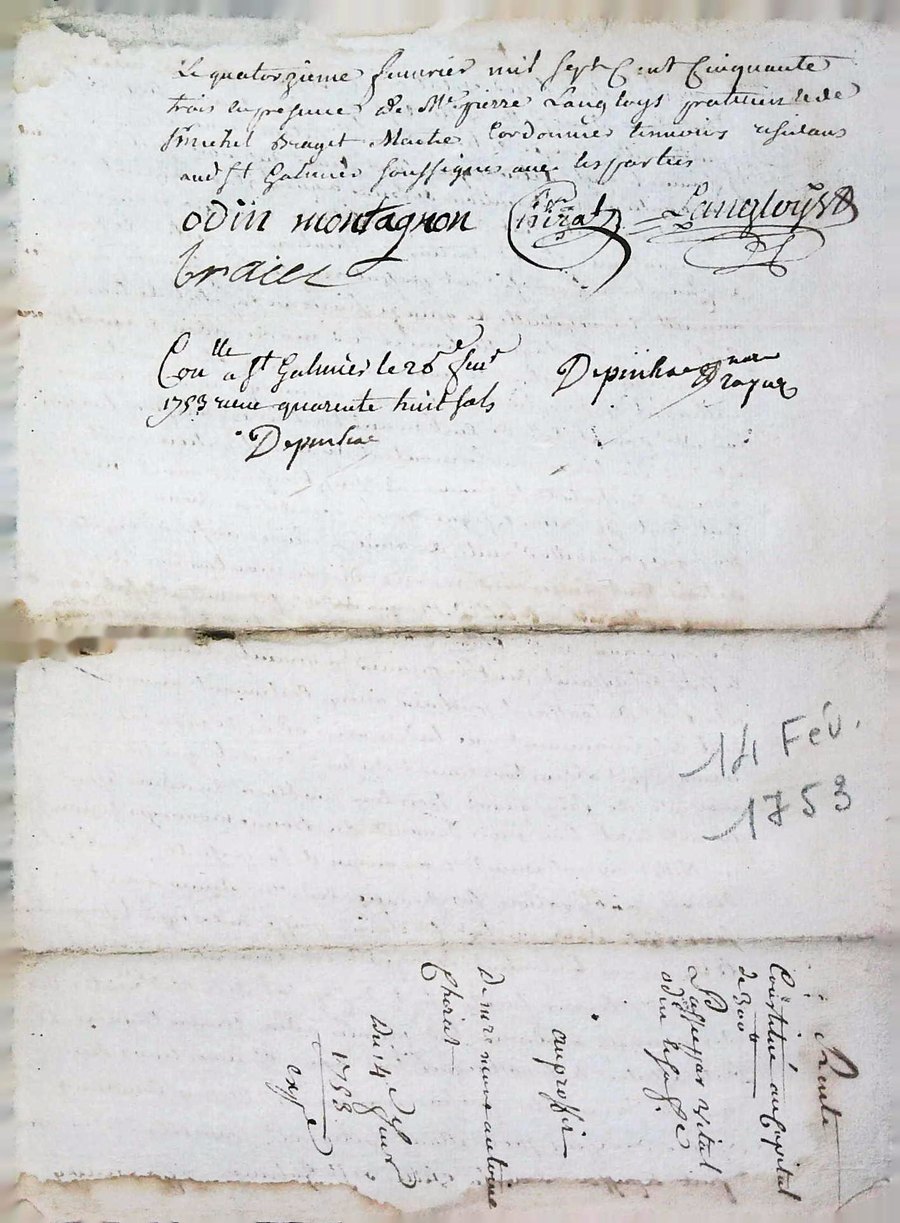 Le quatorzieme fevvrier mil sept Cent Cinquante
trois en presence de Me pierre Langloys praticien & de
sr michel Braget Maitre Cordonnier temoins residans
aud st Galmier soussignes avec les parties
odin montagnon Chirat Langloys
braiet
Conlle a st Galmier le 26e fevr
1753 receu quarente huit sols
Depinhac
Depinhac
14 Fév.
1753
Rente
Constitué au Capital
de 300 lt
passé par vital
odin
au proffit
De mre
Chirat
Du 14e fevr
1753
expe